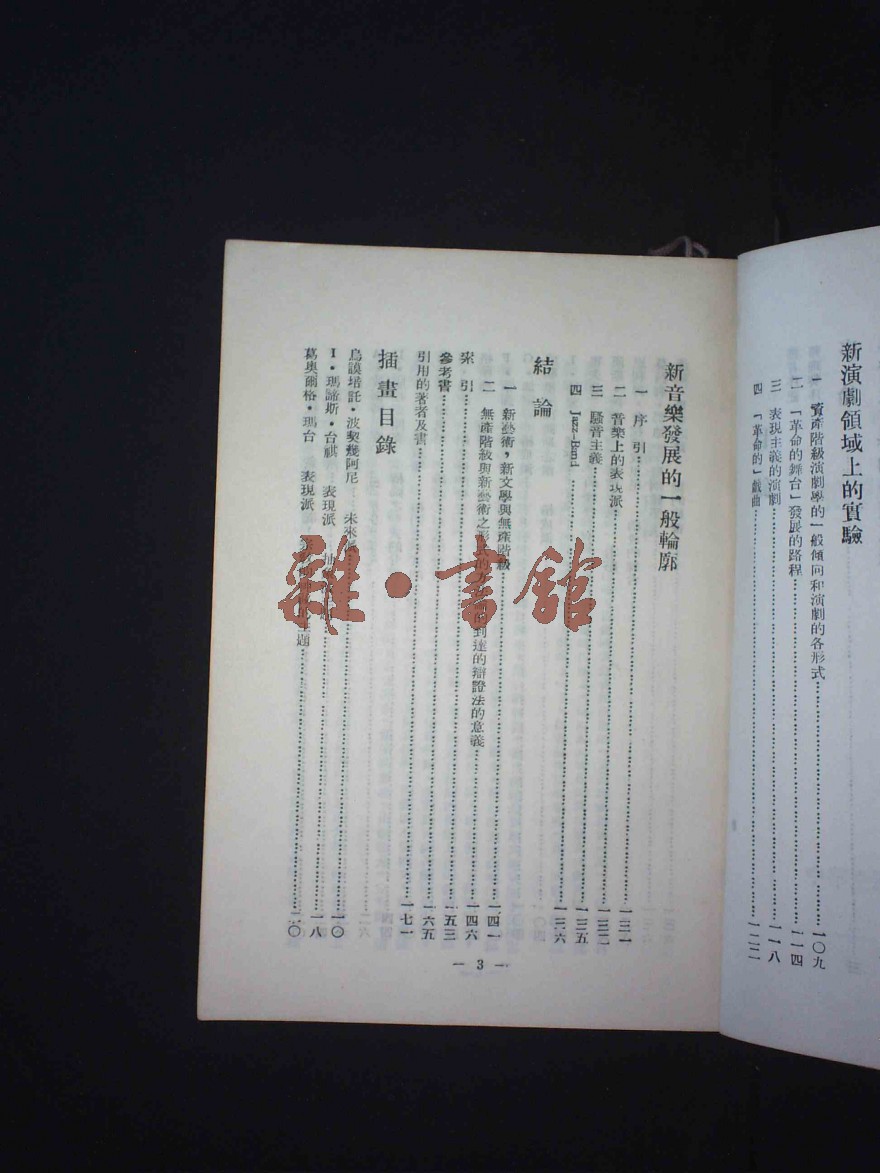 新演劇領域上的實驗
一 資產階級演劇學的一般傾向和演劇的各形式……一〇九
二 「革命的舞台」發展的路程……一一四
三 表現主義的演劇……一一八
四 「革命的」戲曲……一二二
新音樂發展的一般輪廓
一 序引……一三一
二 音樂上的表現派……一三二
三 騷音主義……一三五
四 Jazz-Band……一三六
結論
一 新藝術，新文學與無產階級……一四一
二 無產階級與新藝術之形式的 到達的辯證法的意義……一四六
索引……一五三
參考書……一六五
引用的著者及書……一七一
插畫目錄
烏謨塔託・波契幾阿尼 未來派……一〇
I・瑪諦斯・台祺 表現派……一八
葛奧爾格・瑪台 表現派 題……二〇
— 3 —
雜・書館